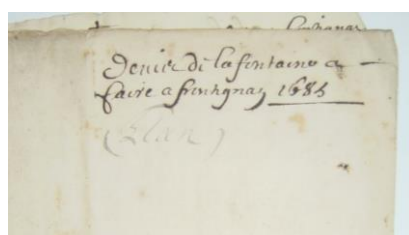 Devis de la fontaine a
faire a frontignan 1685
(Plan)